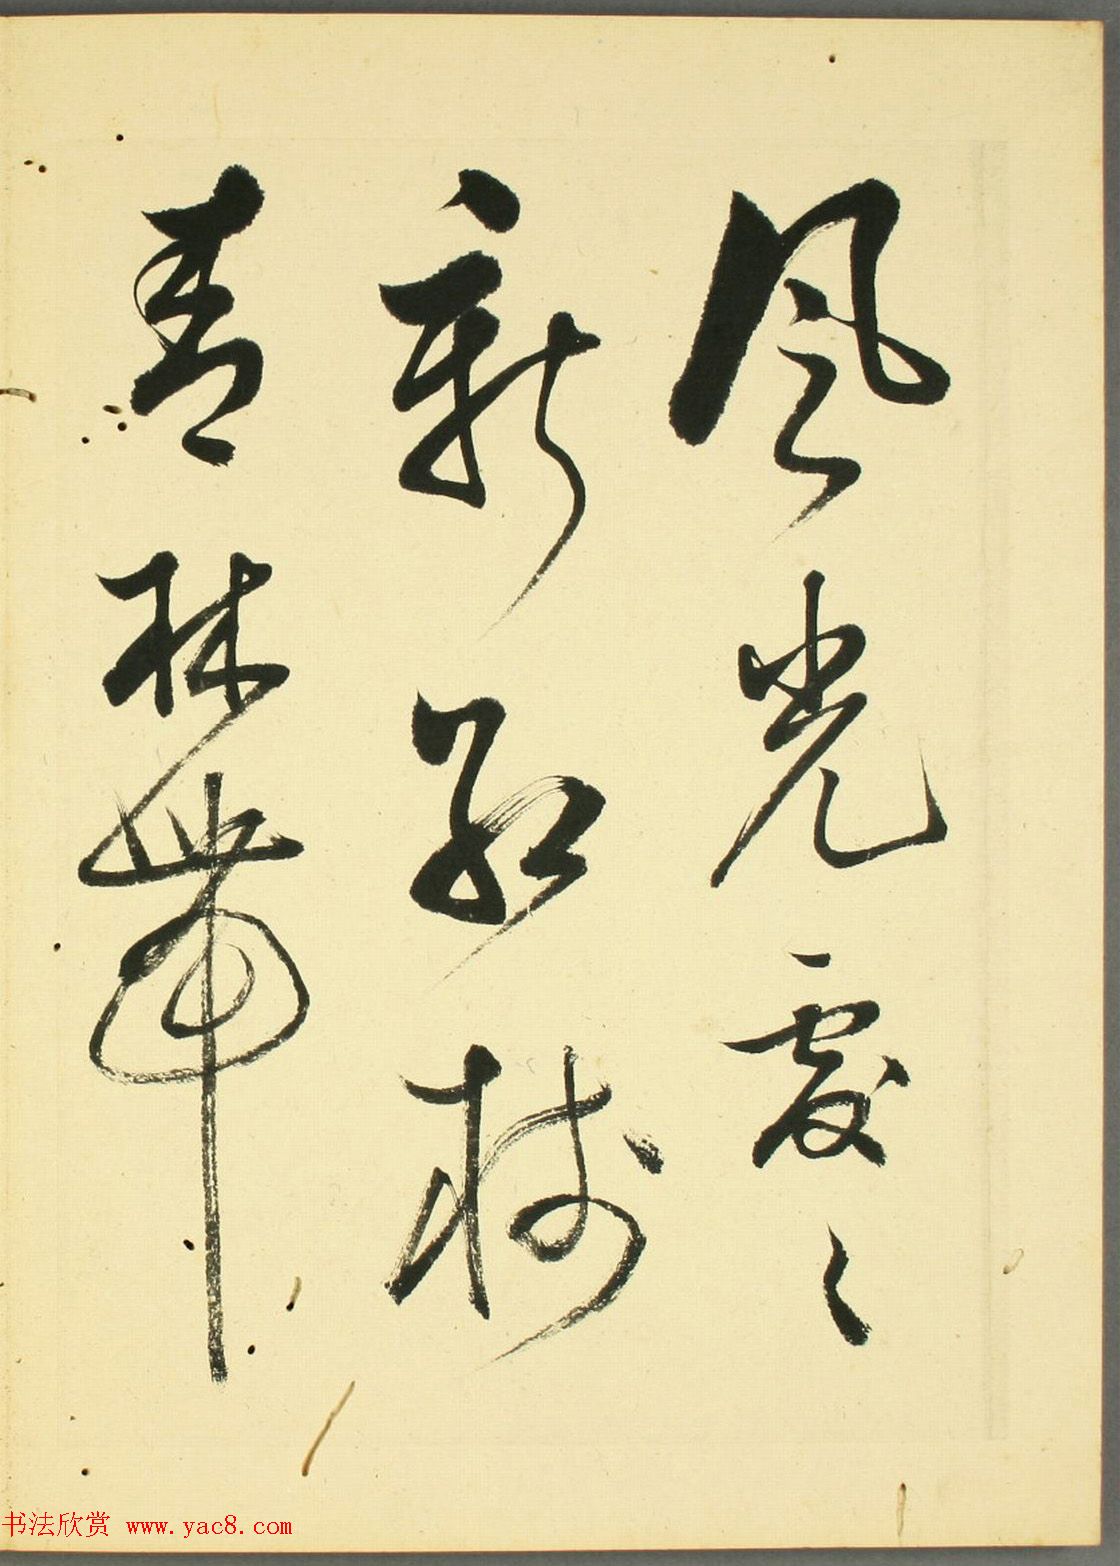 風光處〻
新紅樹
青林帶
书法欣赏 www.yac8.com